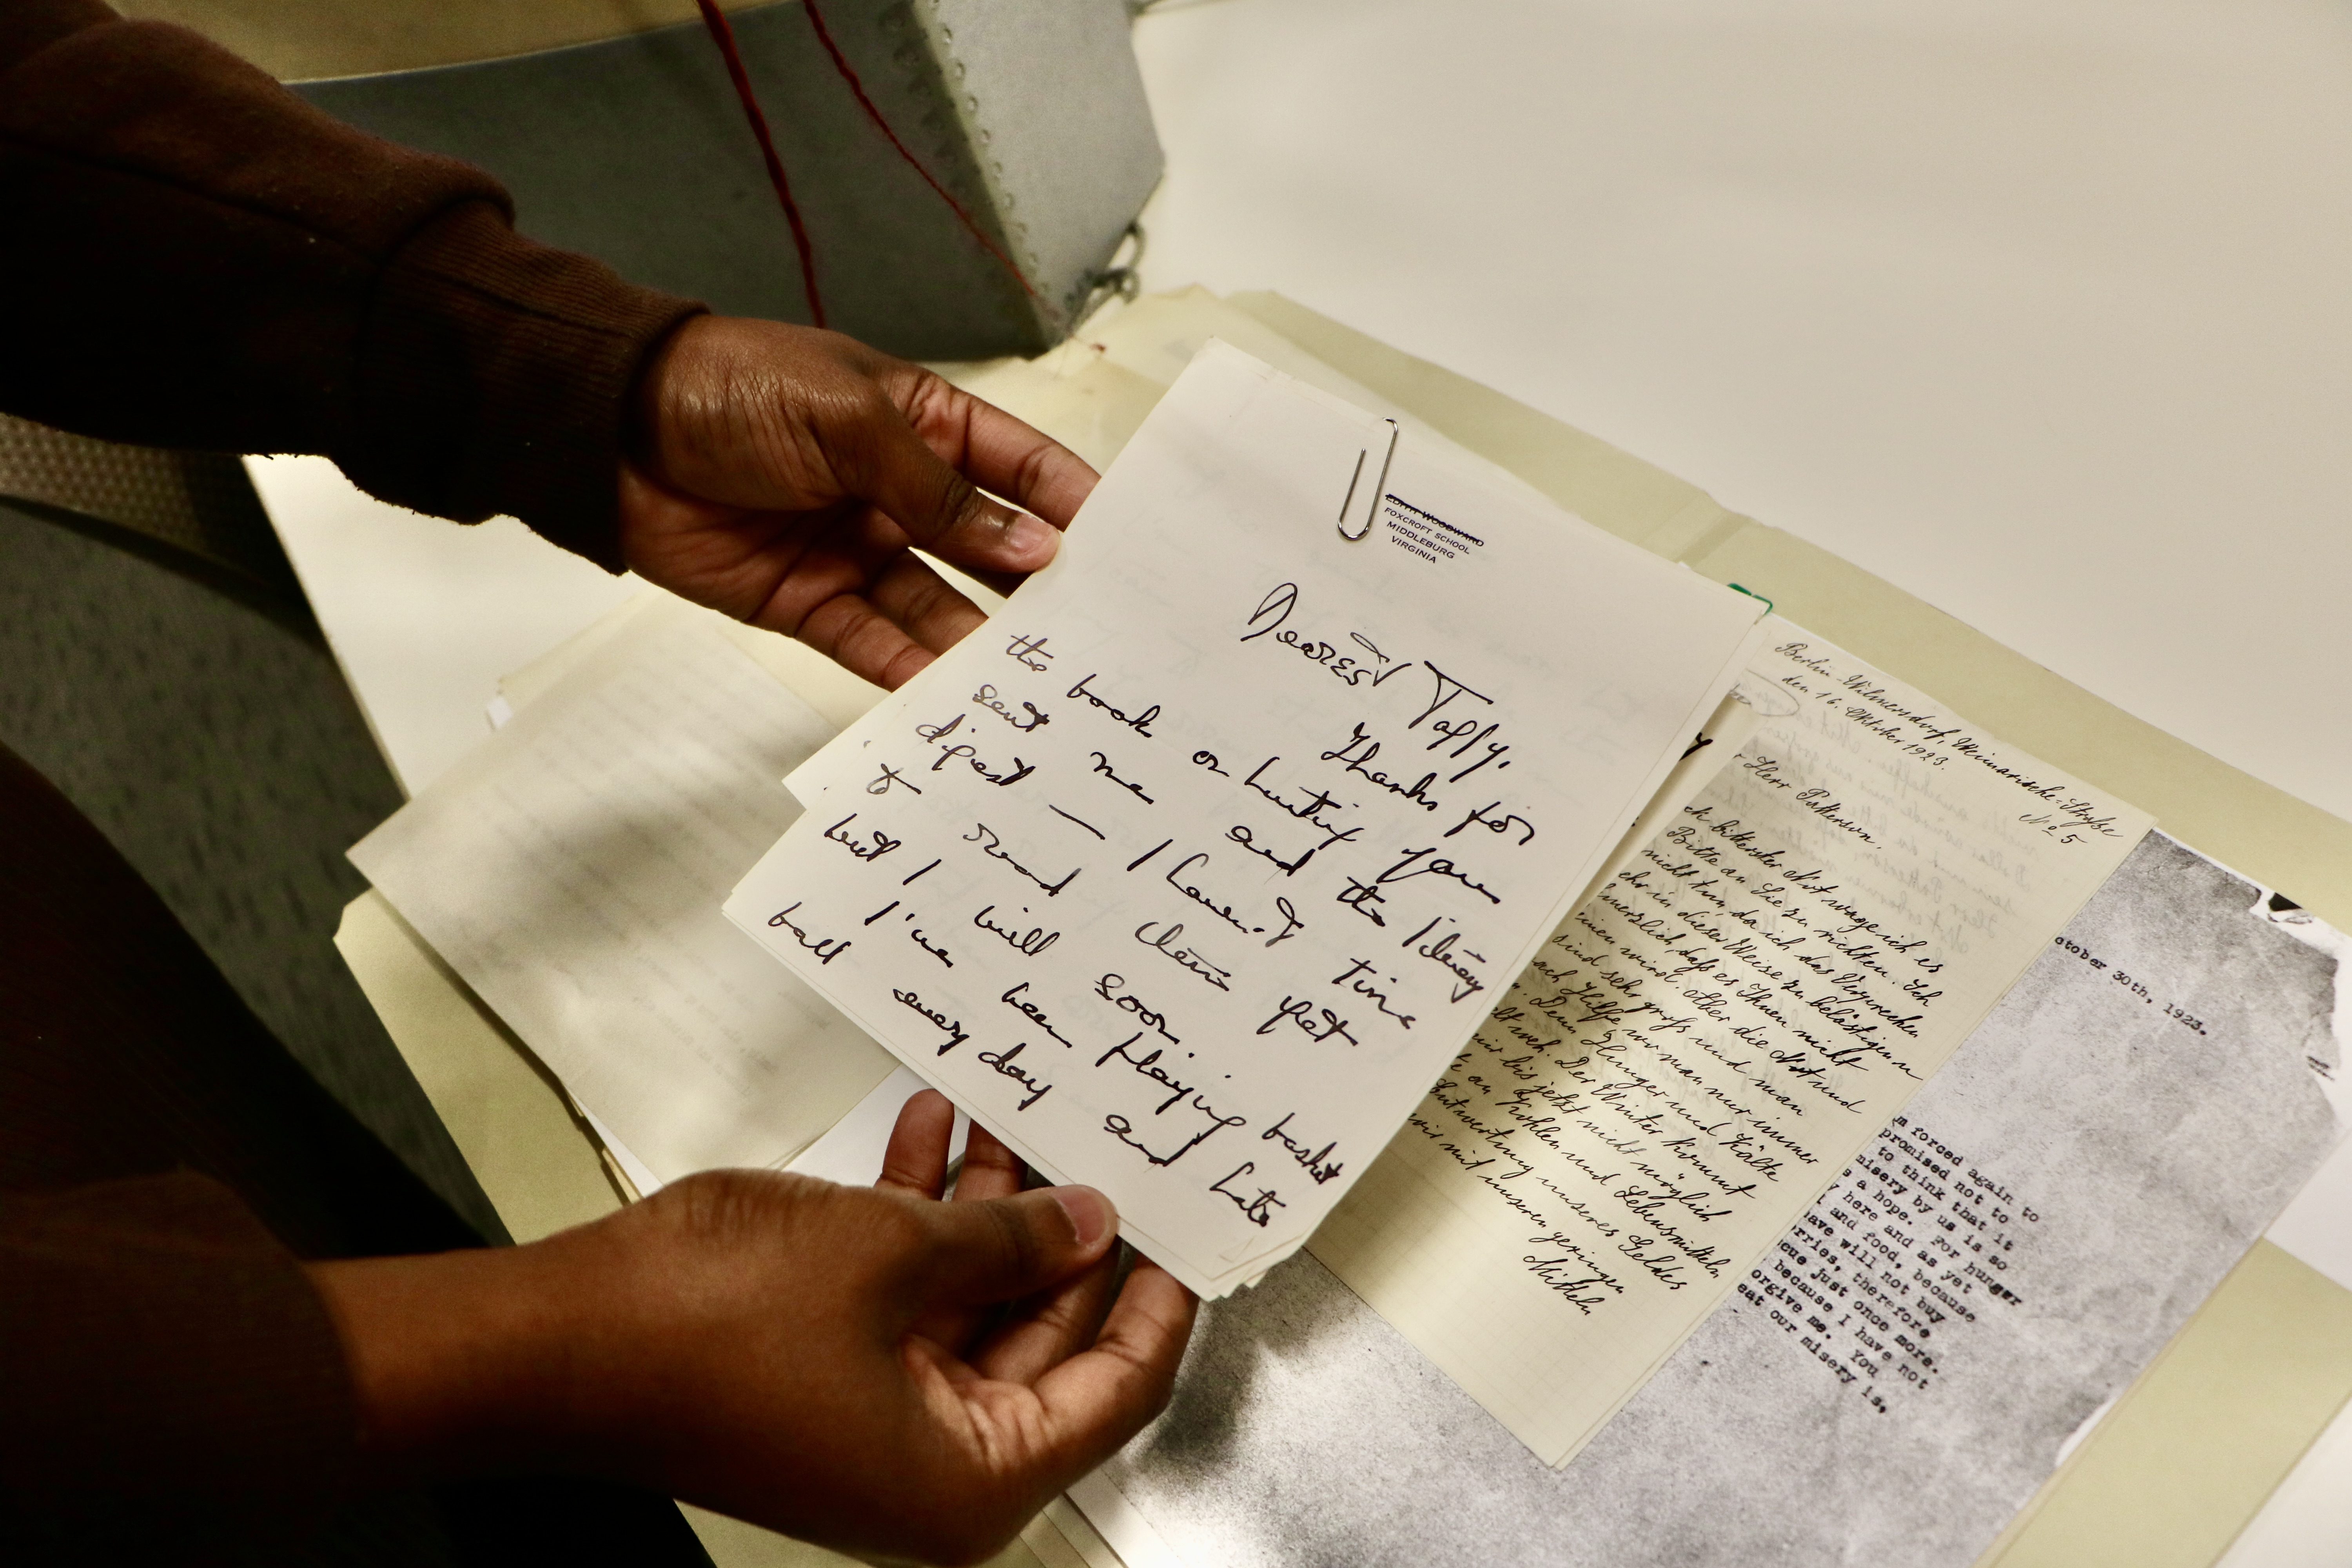 EDITH WOODWARD
FOXCROFT SCHOOL
MIDDLEBURG
VIRGINIA
Dearest Taffy,
Thanks for
the book on hunting you
sent me and the literary
digest — I haven't time
to read them yet
but I will soon.
I've been playing basket
ball every day and hate
Berlin-Wilmersdorf, Weimarische-Straße
No 5
den 16. Oktober 1923.
Herr Patterson.
bitterster Not wage ich es
Bitte an Sie zu richten. Ich
nicht tun, da ich das Versprechen
in dieser Weise zu belästigen
daß es Ihnen nicht
wird. Aber die Not und
sind sehr groß und man
nach Hilfe wo man nur immer
Denn Hunger und Kälte
weh. Der Winter kommt
mir bis jetzt nicht möglich
an Kohlen und Lebensmitteln
Entwertung unseres Geldes
wir mit unseren geringen
Mitteln
ctober 30th, 1923.
m forced again to
promised not to
to think that it
misery by us is so
a hope. For hunger
here and as yet
and food, because
have will not buy
rries, therefore
cue just once more.
because I have not
orgive me. You
eat our misery is,